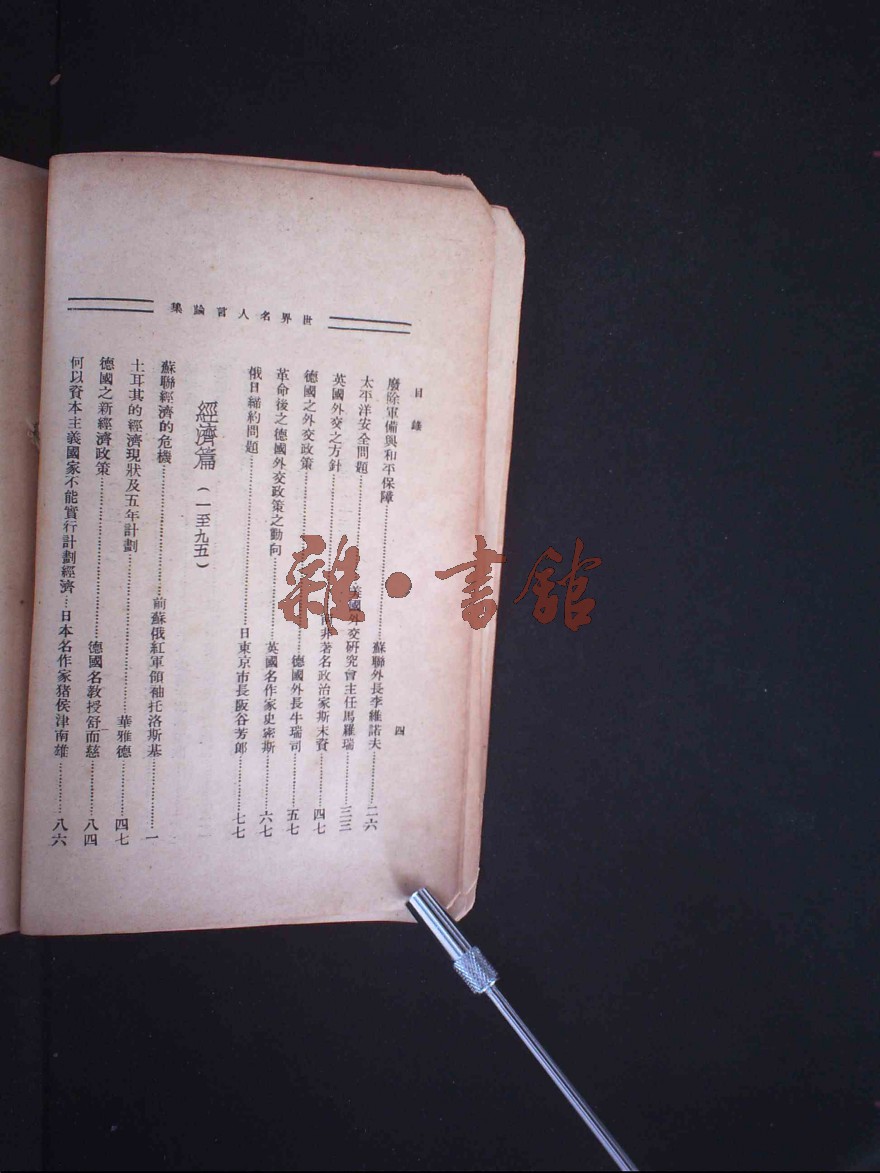 世界名人言論集
目錄
四
廢除軍備與和平保障…………蘇聯外長李維諾夫…………二六
太平洋安全問題…………美國外交研究會主任馬羅瑞…………三三
英國外交之方針…………非著名政治家斯末資…………四七
德國之外交政策…………德國外長牛瑞司…………五七
革命後之德國外交政策之動向…………英國名作家史密斯…………六七
俄日締約問題…………日東京市長阪谷芳郎…………七七
經濟篇(一至九五)
蘇聯經濟的危機…………前蘇俄紅軍領袖托洛斯基…………一
土耳其的經濟現狀及五年計劃…………華雅德…………四七
德國之新經濟政策…………德國名教授舒而慈…………八四
何以資本主義國家不能實行計劃經濟…日本名作家猪侯津南雄…………八六
雜·書館